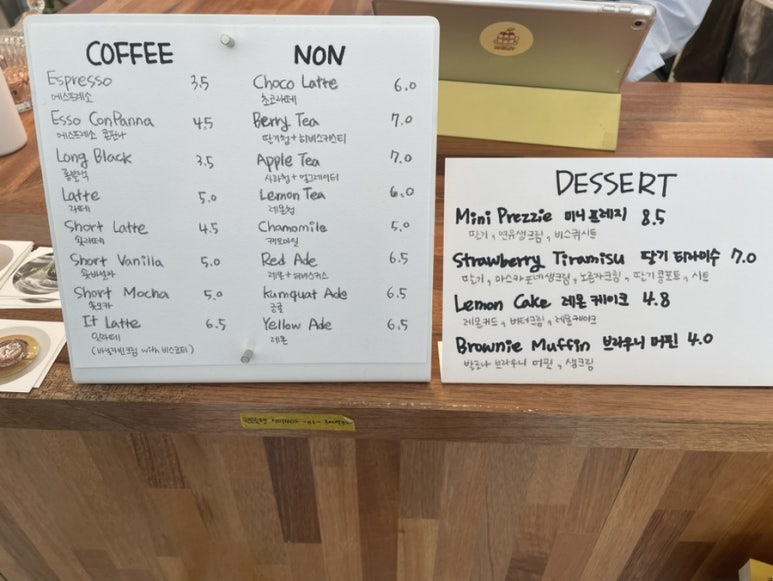 COFFEE
Espresso 3.5
에스프레소
Esso ConPanna 4.5
에스프레소 콘파나
Long Black 3.5
롱블랙
Latte 5.0
라떼
Short Latte 4.5
숏라떼
Short Vanilla 5.0
숏바닐라
Short Mocha 5.0
숏모카
It Latte 6.5
잇라떼
(바닐라빈크림 with 비스코티)
NON
Choco Latte 6.0
초코라떼
Berry Tea 7.0
딸기청+히비스커스티
Apple Tea 7.0
사과청+얼그레이티
Lemon Tea 6.0
레몬청
Chamomile 5.0
캐모마일
Red Ade 6.5
레몬+히비스커스
kumquat Ade 6.5
금귤
Yellow Ade 6.5
레몬
DESSERT
Mini Prezzie 미니 프레지 8.5
딸기, 연유생크림, 비스퀴시트
Strawberry Tiramisu 딸기 티라미수 7.0
딸기, 마스카포네생크림, 노른자크림, 딸기콩포트, 시트
Lemon Cake 레몬 케이크 4.8
레몬커드, 버터크림, 레몬케이크
Brownie Muffin 브라우니 머핀 4.0
발로나 브라우니 머핀, 생크림